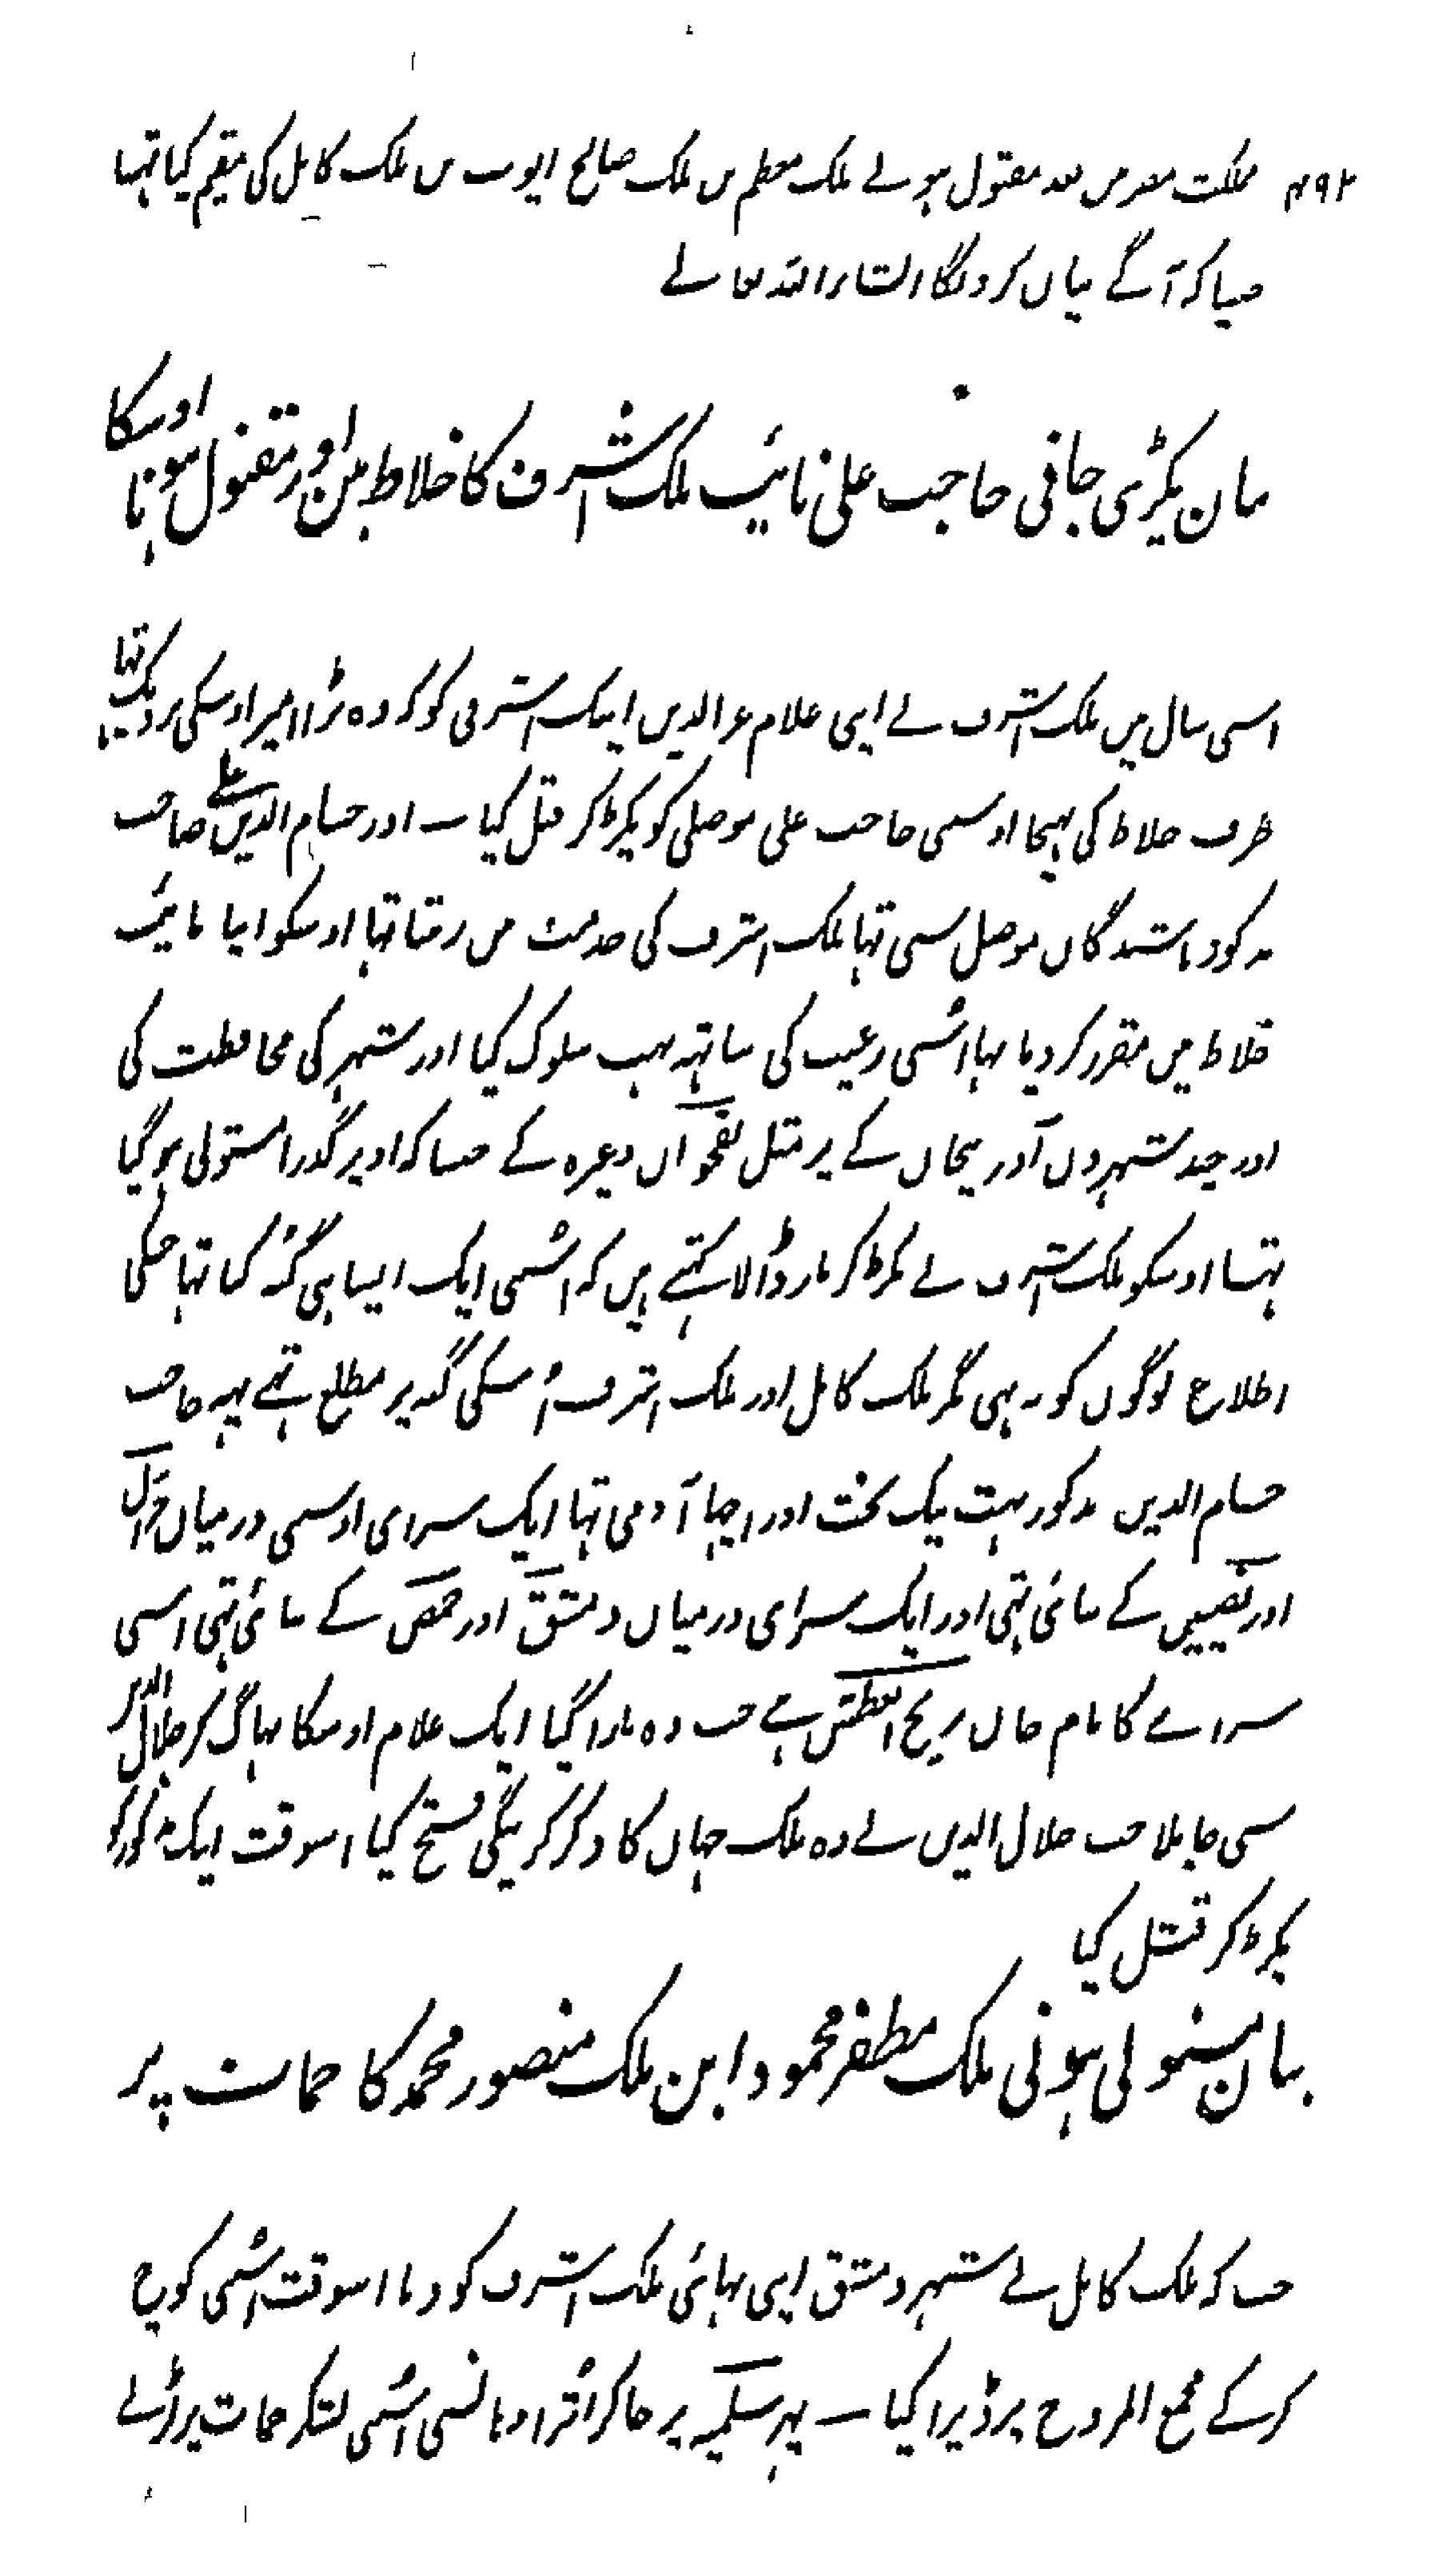 ۴۹۲ مملکت مصر میں بعد مقتول ہونے ملک معظم بن ملک صالح ایوب بن ملک کامل کی مقیم کیا تہا
جیسا کہ آگے بیان کرونگا انشاء اللہ تعالے
بیان پکڑی جانی حاجب علی نائب ملک اشرف کا خلاط مین اور مقتول ہونا اوسکا
اسی سال میں ملک اشرف نے اپنی غلام عز الدین ایبک اشرفی کو کہ وہ بڑا امیر اوسکی نزدیک تہا
طرف خلاط کی بہیجا اوسنی حاجب علی موصلی کو پکڑ کر قتل کیا ــ اور حسام الدین علے حاجب
مذکور باشندگان موصل سی تہا ملک اشرف کی خدمت میں رہتا تہا اوسکو اپنا نائب
خلاط میں مقرر کر دیا تہا اسنی رعیت کی ساتہہ بہت سلوک کیا اور شہر کی محافظت کی
اور چند شہروں آذربیجان کے پر مثل نقجوان وغیرہ کے جیسا کہ اوپر گذرا مستولی ہو گیا
تہا اوسکو ملک اشرف نے پکڑ کر مار ڈالا کہتے ہیں کہ اسنی ایک ایسا ہی گنہ کیا تہا جسکی
اطلاع لوگوں کو نہ تہی مگر ملک کامل اور ملک اشرف اُسکی گنہ پر مطلع تہے یہہ حاجب
حسام الدین مذکور بہت نیک بخت اور اچہا آدمی تہا ایک سرای اوسنی درمیان حران
اور نصیبین کے بنائی تہی اور ایک سرای درمیان دمشق اور حمص کے بنائی تہی اسی
سراے کا نام خان بریح العطش ہے جب وہ مارا گیا ایک غلام اوسکا بہاگ کر جلال الدین
سی جا ملا جب جلال الدین نے وہ ملک جہاں کا ذکر کرینگی فتح کیا اسوقت ایبک مذکور کو
پکڑ کر قتل کیا
بیان مستولی ہونی ملک مظفر محمود ابن ملک منصور محمد کا حمات پر
جب کہ ملک کامل نے شہر دمشق اپنی بہائی ملک اشرف کو دیا اسوقت اسنی کوچ
کر کے مجمع المروج پر ڈیرا کیا ــ پہر سلمیہ پر جا کر اُترا وہانسی اسنی لشکر حمات پر لڑنے